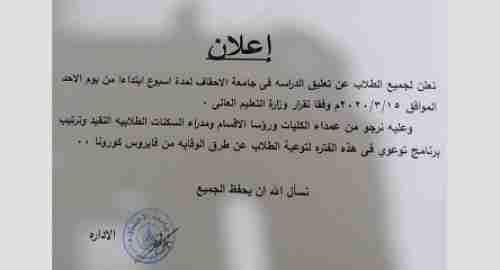 إعلان
نعلن لجميع الطلاب عن تعليق الدراسه في جامعة الاحقاف لمدة اسبوع ابتداءا من يوم الاحد
الموافق ٢٠٢٠/٣/١٥م وفقا لقرار وزارة التعليم العالي .
وعليه نرجو من عمداء الكليات ورؤسا الاقسام ومدراء السكنات الطلابيه التقيد وترتيب
برنامج توعوي في هذه الفتره لتوعية الطلاب عن طرق الوقايه من فايروس كورونا ..
نسأل الله ان يحفظ الجميع
الاداره